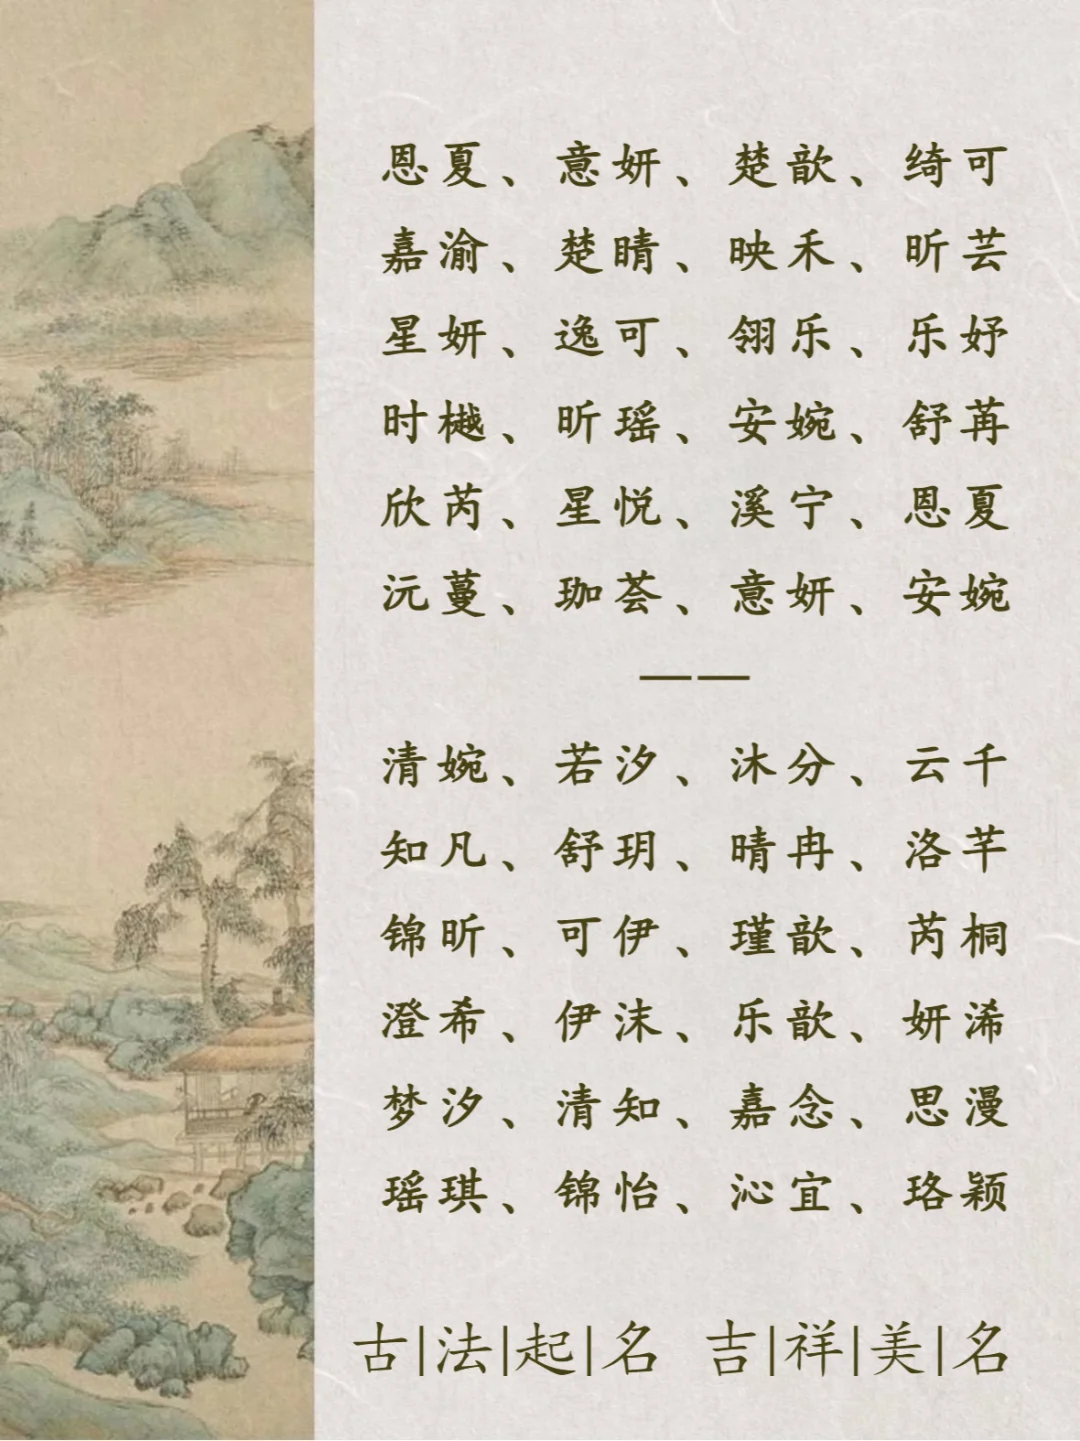 恩夏、意妍、楚歆、绮可
嘉渝、楚晴、映禾、昕芸
星妍、逸可、翎乐、乐妤
时樾、昕瑶、安婉、舒苒
欣芮、星悦、溪宁、恩夏
沅蔓、珈荟、意妍、安婉
——
清婉、若汐、沐分、云千
知凡、舒玥、晴冉、洛芊
锦昕、可伊、瑾歆、芮桐
澄希、伊沫、乐歆、妍浠
梦汐、清知、嘉念、思漫
瑶琪、锦怡、沁宜、珞颖
古|法|起|名 吉|祥|美|名